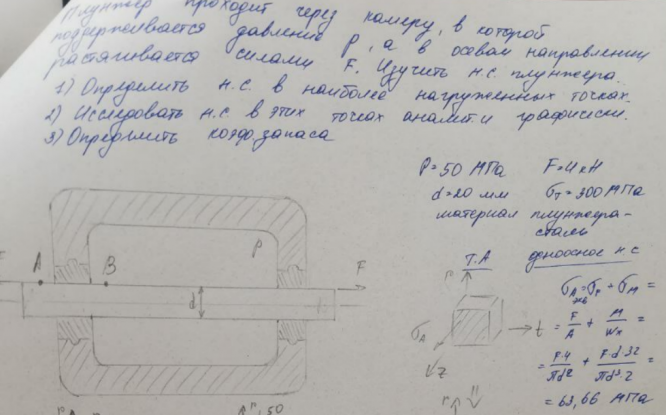 Плунжер проходит через камеру, в которой
поддерживается давление P, а в осевом направлении
растягивается силами F. Изучить н.с. плунжера.
1) Определить н.с. в наиболее нагруженных точках.
2) Исследовать н.с. в этих точках аналит и графически.
3) Определить коэф. запаса
P=50 МПа F=4кН
d=20 мм σT=300 МПа
материал плунжера-
сталь
Т.А
одноосное н.с
A B P F F d
r
σA
t
z
σA экв = σF + σM =
= F/A + M/Wx =
= F·4/πd² + F·d·32/πd³·2 =
= 63,66 МПа